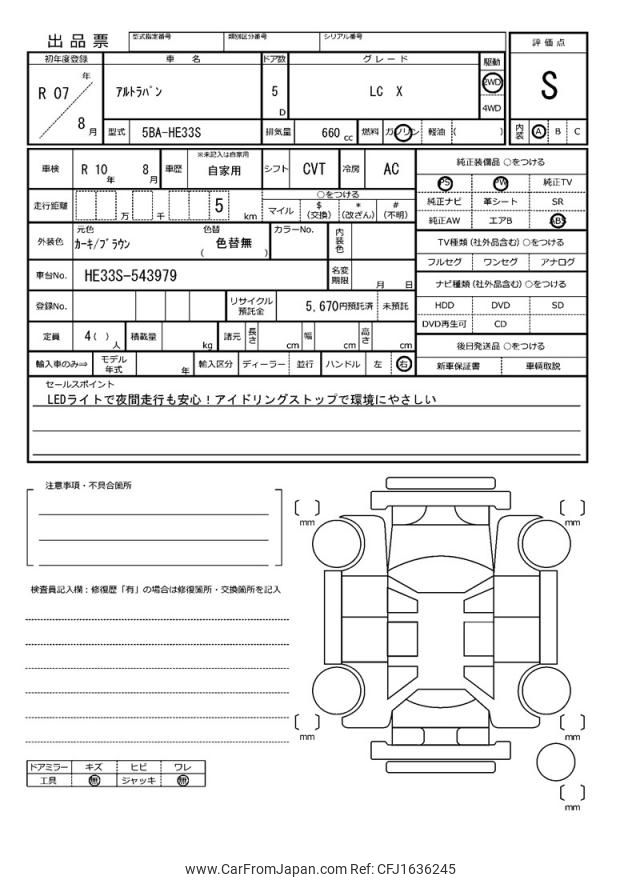 出品票
型式指定番号 類別区分番号 シリアル番号
評価点
S
内装 A B C
初年度登録 車名 ドア数 グレード 駆動
R 07 年 8 月
アルトラパン
5 D
LC X
2WD
4WD
型式 5BA-HE33S 排気量 660 cc 燃料 ガソリン 軽油 ( )
車検 R 10 年 8 月 車歴 ※未記入は自家用 自家用 シフト CVT 冷房 AC
走行距離 万 千 5 km
○をつける
マイル $ (交換) * (改ざん) # (不明)
外装色 元色 カーキ/ブラウン 色替 ( 色替無 ) カラーNo. 内装色
車台No. HE33S-543979 名変期限 月 日
登録No. リサイクル預託金 5,670円預託済 未預託
定員 4( ) 人 積載量 kg 諸元 長さ cm 幅 cm 高さ cm
輸入車のみ⇒ モデル年式 年 輸入区分 ディーラー 並行 ハンドル 左 右
純正装備品 ○をつける
PS PW 純正TV
純正ナビ 革シート SR
純正AW エアB ABS
TV種類 (社外品含む) ○をつける
フルセグ ワンセグ アナログ
ナビ種類 (社外品含む) ○をつける
HDD DVD SD
DVD再生可 CD
後日発送品 ○をつける
新車保証書 車輌取説
セールスポイント
LEDライトで夜間走行も安心！アイドリングストップで環境にやさしい
注意事項・不具合箇所
検査員記入欄：修復歴「有」の場合は修復箇所・交換箇所を記入
mm
mm
mm
mm
mm
ドアミラー キズ ヒビ ワレ
工具 無 ジャッキ 無
www.CarFromJapan.com Ref: CFJ1636245